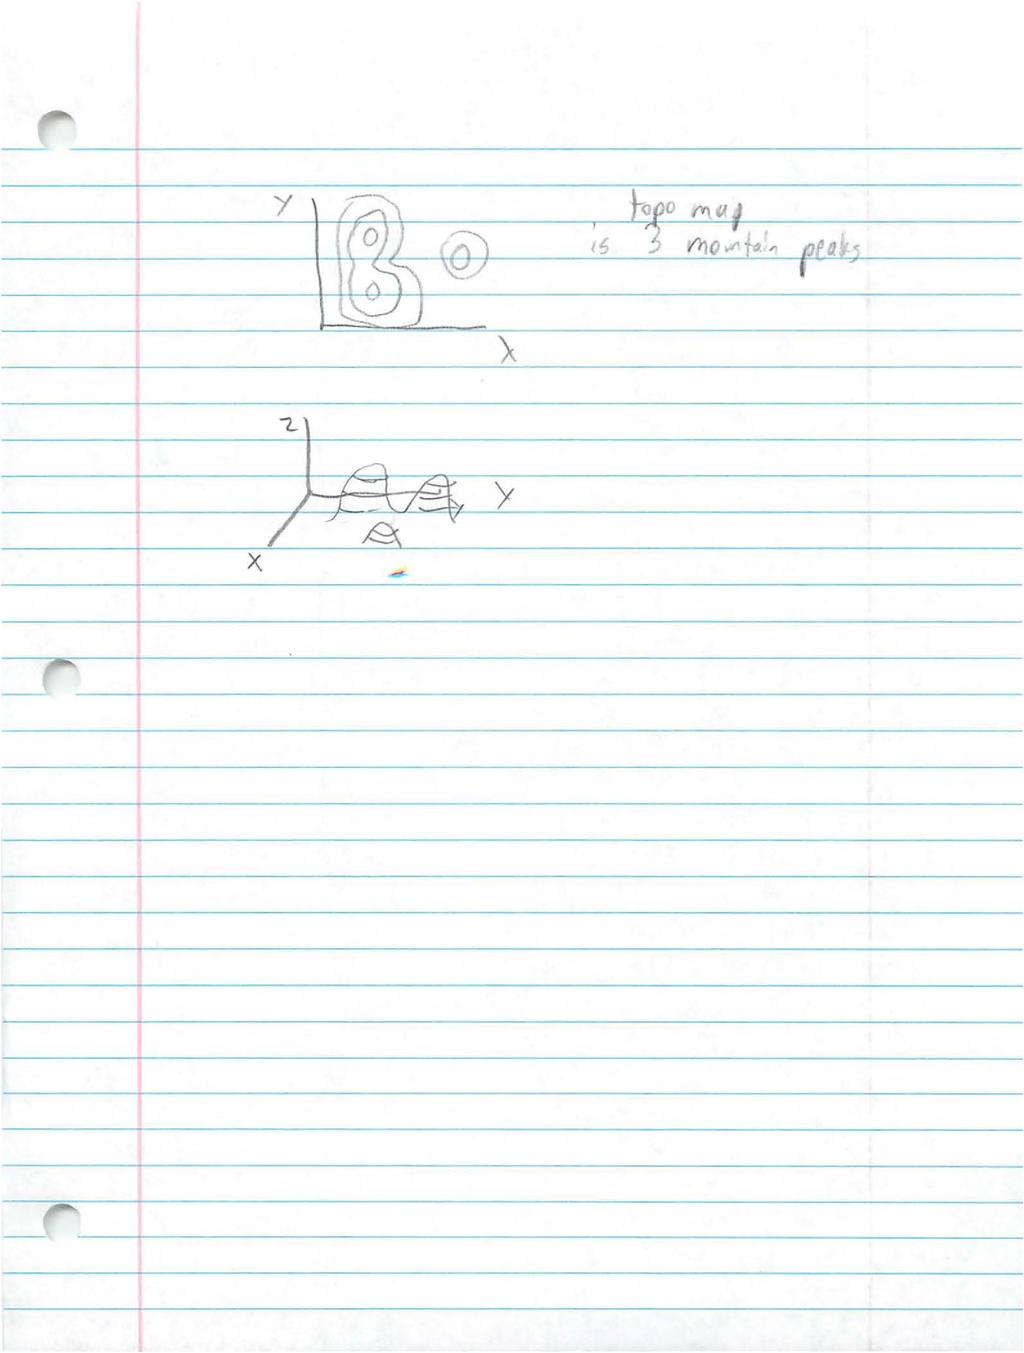 Y
topo map
is 3 mountain peaks
X
Z
Y
X